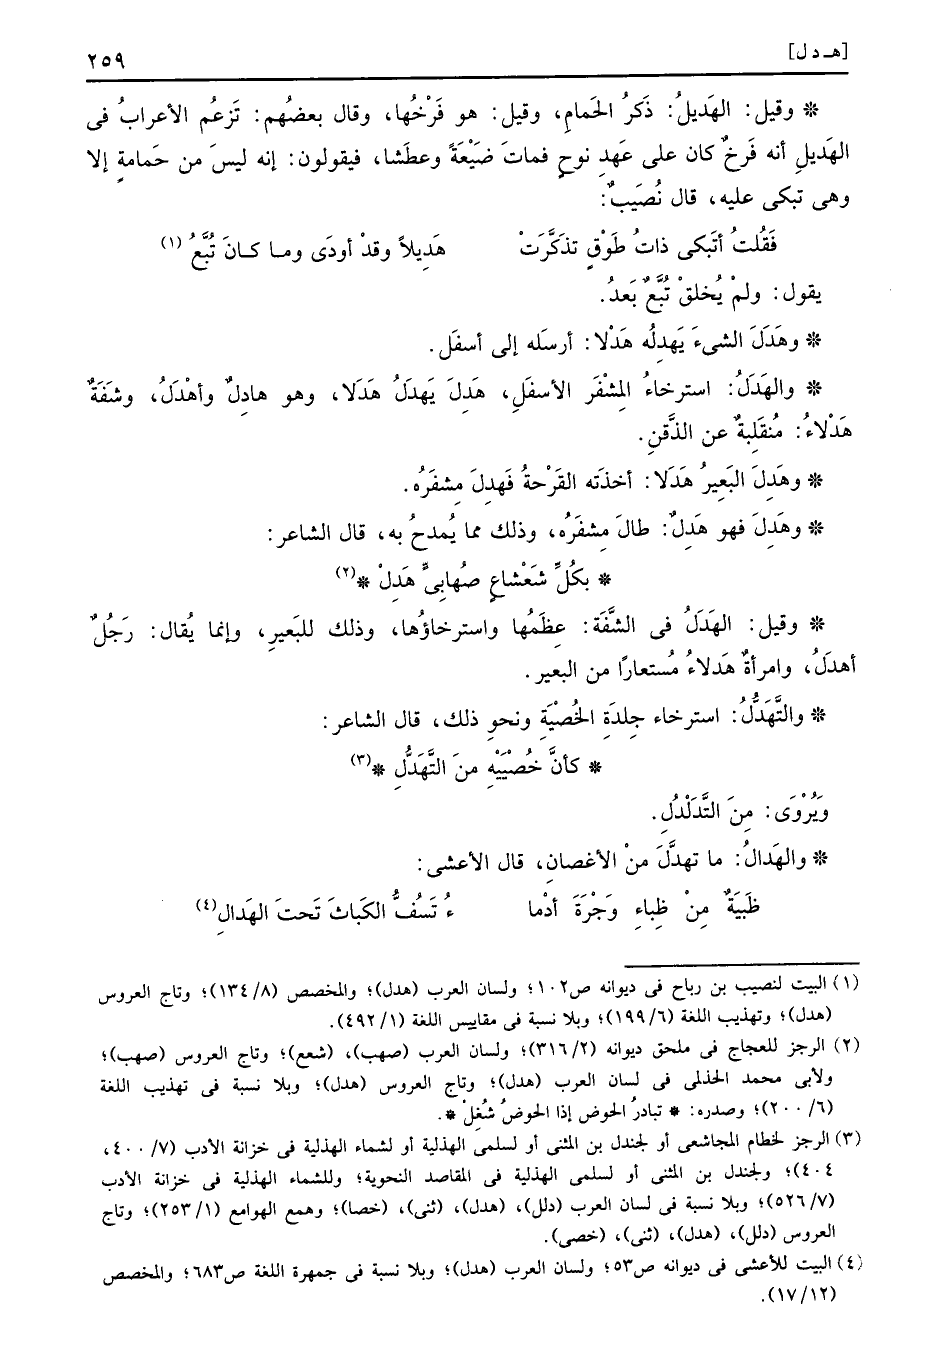 [هـ د ل] ٢٥٩
* وقيل: الهَديلُ: ذَكرُ الحَمامِ، وقيل: هو فَرْخُها، وقال بعضُهم: تَزعُم الأعرابُ فى
الهَديلِ أنه فَرخٌ كان على عَهدِ نوحٍ فماتَ ضَيْعَةً وعطَشا، فيقولون: إنه ليسَ من حَمامةٍ إلا
وهى تبكى عليه، قال نُصَيبٌ:
فَقُلتُ أتَبكى ذاتُ طَوْقٍ تذكَّرَتْ هَديلاً وقدْ أودَى وما كانَ تُبَّعُ (١)
يقول: ولمْ يُخلقْ تُبَّعٌ بَعدُ.
* وهَدَلَ الشىءَ يَهدِلُه هَدْلا: أرسَله إلى أسفَل.
* والهَدَلُ: استرخاءُ المِشْفَر الأسفَلِ، هَدِلَ يَهدَلُ هَدَلا، وهو هادِلٌ وأهْدَلُ، وشَفَةٌ
هَدْلاءُ: مُنقَلِبةٌ عن الذَّقنِ.
* وهَدِلَ البَعيرُ هَدَلا: أخذَته القَرْحةُ فَهدِلَ مِشفَرُه.
* وهَدِلَ فهو هَدِلٌ: طالَ مِشفَرُه، وذلك مما يُمدحُ به، قال الشاعر:
* بكُلِّ شَعْشاعٍ صُهابِىٍّ هَدِلْ *(٢)
* وقيل: الهَدَلُ فى الشَّفَة: عِظَمُها واسترخاؤُها، وذلك للبَعيرِ، وإنما يُقال: رَجُلٌ
أهدَلُ، وامرأةٌ هَدلاءُ مُستعارًا من البعير.
* والتَّهَدُّلُ: استرخاء جِلدَةِ الخُصْيَةِ ونحوِ ذلك، قال الشاعر:
* كأنَّ خُصْيَيْهِ منَ التَّهَدُّلِ *(٣)
وَيُرْوَى: مِنَ التَّدَلْدُلِ.
* والهَدالُ: ما تهدَّلَ منْ الأغصانِ، قال الأعشى:
ظَبَيَةٌ مِنْ ظِباءِ وَجْرَةَ أدْما ءُ تَسُفُّ الكَباثَ تَحتَ الهَدالِ(٤)
(١) البيت لنصيب بن رباح فى ديوانه ص١٠٢؛ ولسان العرب (هدل)؛ والمخصص (٨/ ١٣٤)؛ وتاج العروس
(هدل)؛ وتهذيب اللغة (٦/ ١٩٩)؛ وبلا نسبة فى مقاييس اللغة (١/ ٤٩٢).
(٢) الرجز للعجاج فى ملحق ديوانه (٢/ ٣١٦)؛ ولسان العرب (صهب)، (شعع)؛ وتاج العروس (صهب)؛
ولأبى محمد الحذلمى فى لسان العرب (هدل)؛ وتاج العروس (هدل)؛ وبلا نسبة فى تهذيب اللغة
(٦/ ٢٠٠)؛ وصدره: * تبادرُ الحوض إذا الحوضُ شُغِلْ *.
(٣) الرجز لخطام المجاشعى أو لجندل بن المثنى أو لسلمى الهذلية أو لشماء الهذلية فى خزانة الأدب (٧/ ٤٠٠،
٤٠٤)؛ ولجندل بن المثنى أو لسلمى الهذلية فى المقاصد النحوية؛ وللشماء الهذلية فى خزانة الأدب
(٧/ ٥٢٦)؛ وبلا نسبة فى لسان العرب (دلل)، (هدل)، (ثنى)، (خصا)؛ وهمع الهوامع (١/ ٢٥٣)؛ وتاج
العروس (دلل)، (هدل)، (ثنى)، (خصى).
(٤) البيت للأعشى فى ديوانه ص٥٣؛ ولسان العرب (هدل)؛ وبلا نسبة فى جمهرة اللغة ص٦٨٣؛ والمخصص
(١٢/ ١٧).